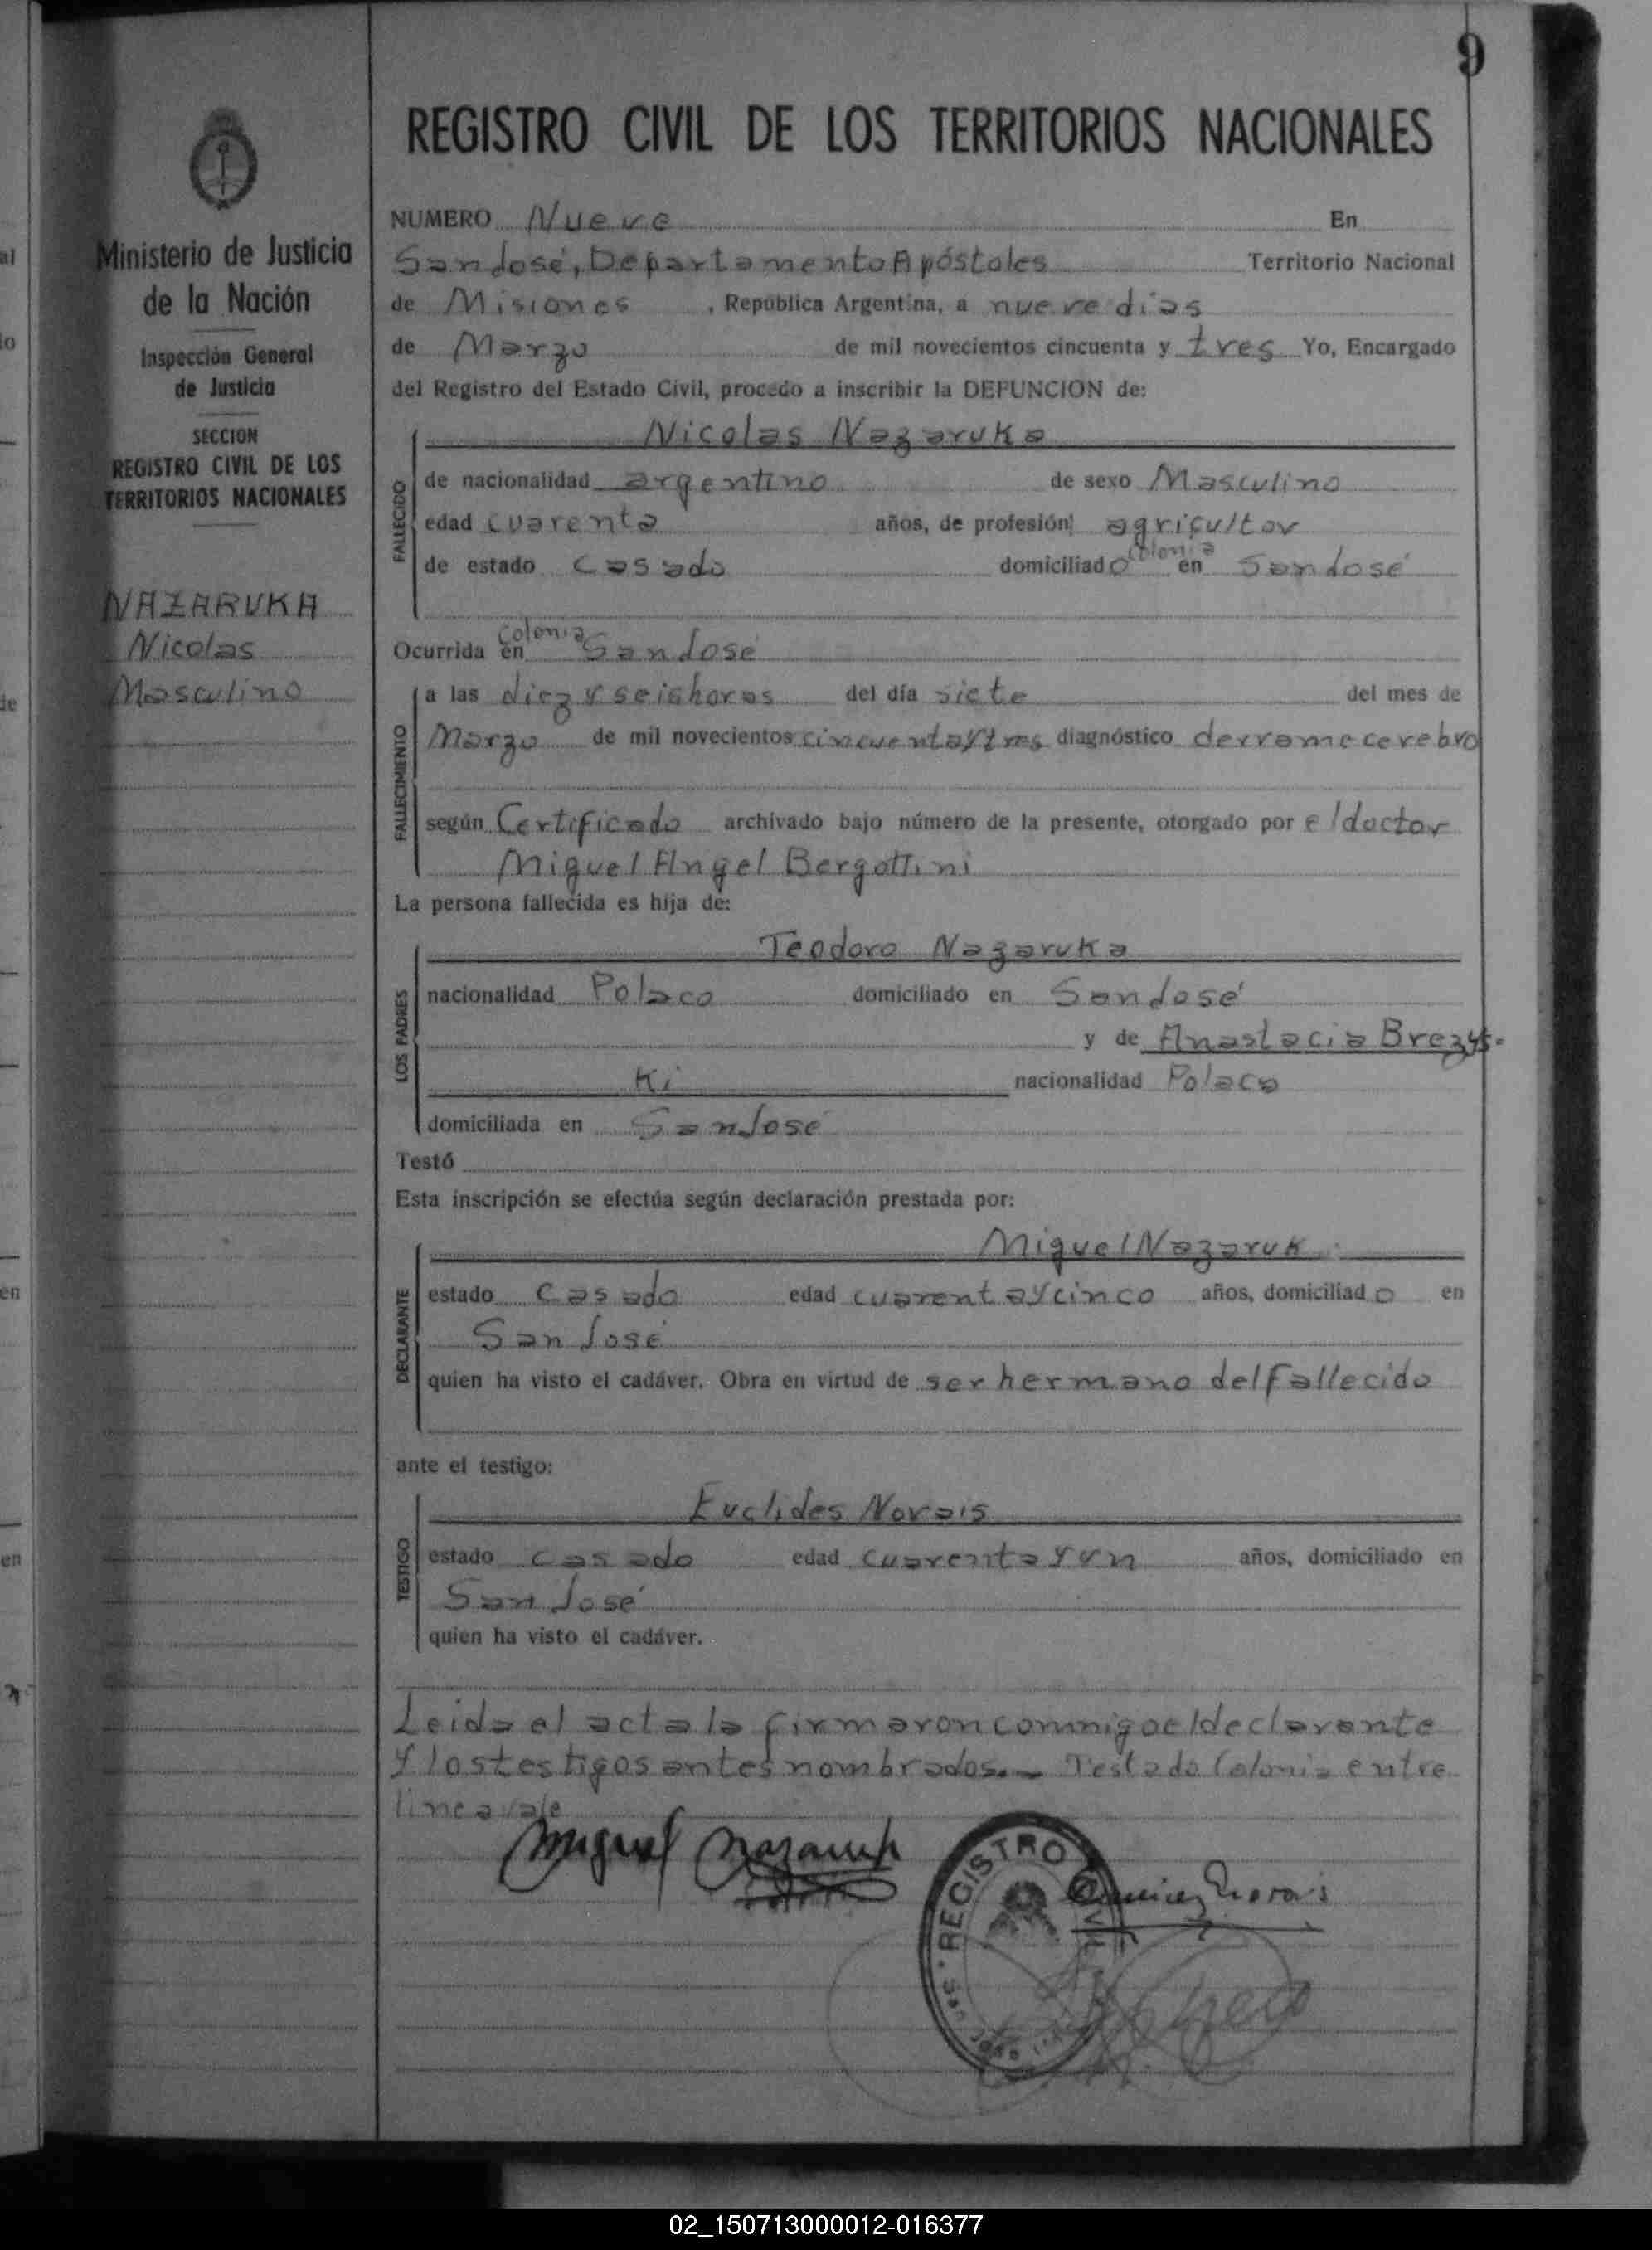 9
REGISTRO CIVIL DE LOS TERRITORIOS NACIONALES
Ministerio de Justicia
de la Nación
Inspección General
de Justicia
SECCION
REGISTRO CIVIL DE LOS
TERRITORIOS NACIONALES
NAZARUKA
Nicolas
Masculino
NUMERO Nueve En
San José, Departamento Apóstoles Territorio Nacional
de Misiones, República Argentina, a nueve días
de Marzo de mil novecientos cincuenta y tres Yo, Encargado
del Registro del Estado Civil, procedo a inscribir la DEFUNCION de:
Nicolas Nazaruka
FALLECIDO
de nacionalidad argentino de sexo Masculino
edad cuarenta años, de profesión agricultor
de estado casado domiciliado colonia en San José
Ocurrida en colonia San José
FALLECIMIENTO
a las diez y seis horas del día siete del mes de
Marzo de mil novecientos cincuenta y tres diagnóstico derrame cerebro
según Certificado archivado bajo número de la presente, otorgado por el doctor
Miguel Angel Bergottini
La persona fallecida es hija de:
Teodoro Nazaruka
LOS PADRES
nacionalidad Polaco domiciliado en San José
y de Anastacia Brezys-
ki nacionalidad Polaca
domiciliada en San José
Testó
Esta inscripción se efectúa según declaración prestada por:
Miguel Nazaruk
DECLARANTE
estado Casado edad cuarenta y cinco años, domiciliado en
San José
quien ha visto el cadáver. Obra en virtud de ser hermano del fallecido
ante el testigo:
Euclides Norais
TESTIGO
estado casado edad cuarenta y un años, domiciliado en
San José
quien ha visto el cadáver.
Leida el acta la firmaron conmigo el declarante
y los testigos antes nombrados.- Testado Colonia entre
linea vale
Miguel Nazaruk
REGISTRO CIVIL
02_150713000012-016377